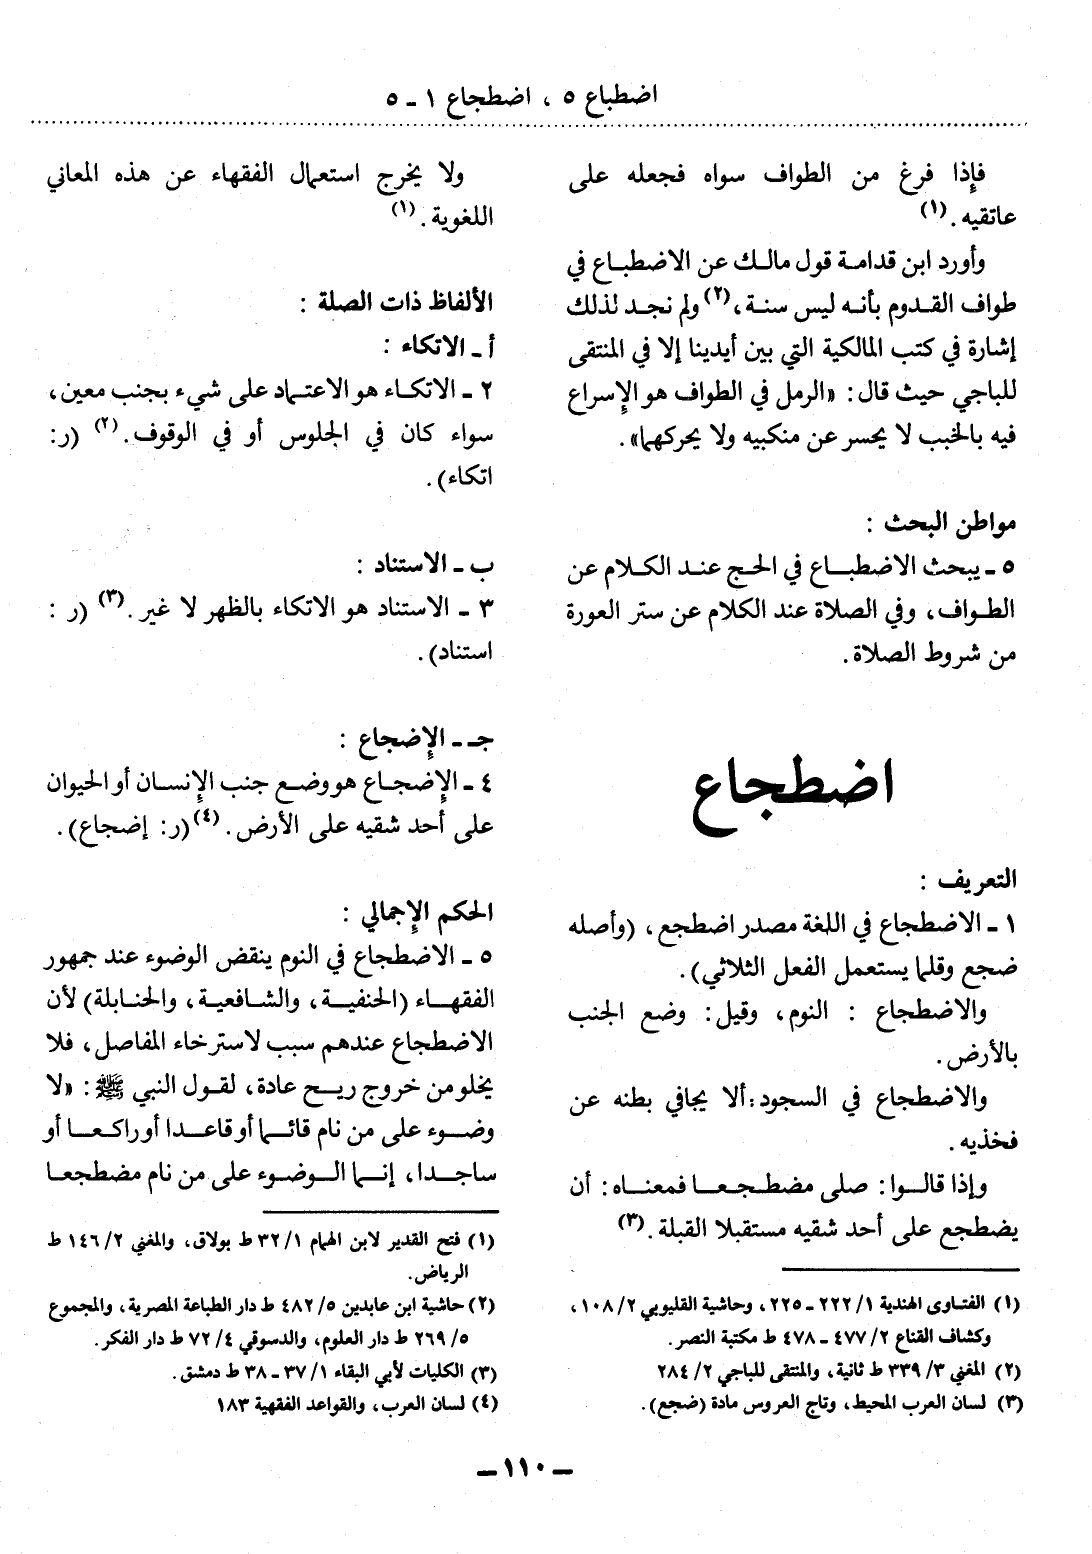 اضطباع ٥ ، اضطجاع ١ ـ ٥
فإذا فرغ من الطواف سواه فجعله على
عاتقيه . (١)
وأورد ابن قدامة قول مالك عن الاضطباع في
طواف القدوم بأنه ليس سنة ، (٢) ولم نجد لذلك
إشارة في كتب المالكية التي بين أيدينا إلا في المنتقى
للباجي حيث قال : «الرمل في الطواف هو الإسراع
فيه بالخبب لا يحسر عن منكبيه ولا يحركهما» .
مواطن البحث :
٥ ـ يبحث الاضطباع في الحج عند الكلام عن
الطواف ، وفي الصلاة عند الكلام عن ستر العورة
من شروط الصلاة .
اضطجاع
التعريف :
١ ـ الاضطجاع في اللغة مصدر اضطجع ، (وأصله
ضجع وقلما يستعمل الفعل الثلاثي) .
والاضطجاع : النوم ، وقيل : وضع الجنب
بالأرض .
والاضطجاع في السجود : ألا يجافي بطنه عن
فخذيه .
وإذا قالوا : صلى مضطجعا فمعناه : أن
يضطجع على أحد شقيه مستقبلا القبلة . (٣)
(١) الفتاوى الهندية ١/ ٢٢٢ ـ ٢٢٥ ، وحاشية القليوبي ٢/ ١٠٨ ،
وكشاف القناع ٢/ ٤٧٧ ـ ٤٧٨ ط مكتبة النصر .
(٢) المغني ٣/ ٣٣٩ ط ثانية ، والمنتقى للباجي ٢/ ٢٨٤
(٣) لسان العرب المحيط ، وتاج العروس مادة (ضجع) .
ولا يخرج استعمال الفقهاء عن هذه المعاني
اللغوية . (١)
الألفاظ ذات الصلة :
أ ـ الاتكاء :
٢ ـ الاتكاء هو الاعتماد على شيء بجنب معين ،
سواء كان في الجلوس أو في الوقوف . (٢) (ر :
اتكاء) .
ب ـ الاستناد :
٣ ـ الاستناد هو الاتكاء بالظهر لا غير . (٣) (ر :
استناد) .
جـ ـ الإضجاع :
٤ ـ الإضجاع هو وضع جنب الإنسان أو الحيوان
على أحد شقيه على الأرض . (٤) (ر : إضجاع) .
الحكم الإجمالي :
٥ ـ الاضطجاع في النوم ينقض الوضوء عند جمهور
الفقهاء (الحنفية ، والشافعية ، والحنابلة) لأن
الاضطجاع عندهم سبب لاسترخاء المفاصل ، فلا
يخلو من خروج ريح عادة ، لقول النبي ﷺ : «لا
وضوء على من نام قائما أو قاعدا أو راكعا أو
ساجدا ، إنما الوضوء على من نام مضطجعا
(١) فتح القدير لابن الهمام ١/ ٣٢ ط بولاق ، والمغني ٢/ ١٤٦ ط
الرياض .
(٢) حاشية ابن عابدين ٥/ ٤٨٢ ط دار الطباعة المصرية ، والمجموع
٥/ ٢٦٩ ط دار العلوم ، والدسوقي ٤/ ٧٢ ط دار الفكر .
(٣) الكليات لأبي البقاء ١/ ٣٧ ـ ٣٨ ط دمشق .
(٤) لسان العرب ، والقواعد الفقهية ١٨٣
ـ ١١٠ ـ